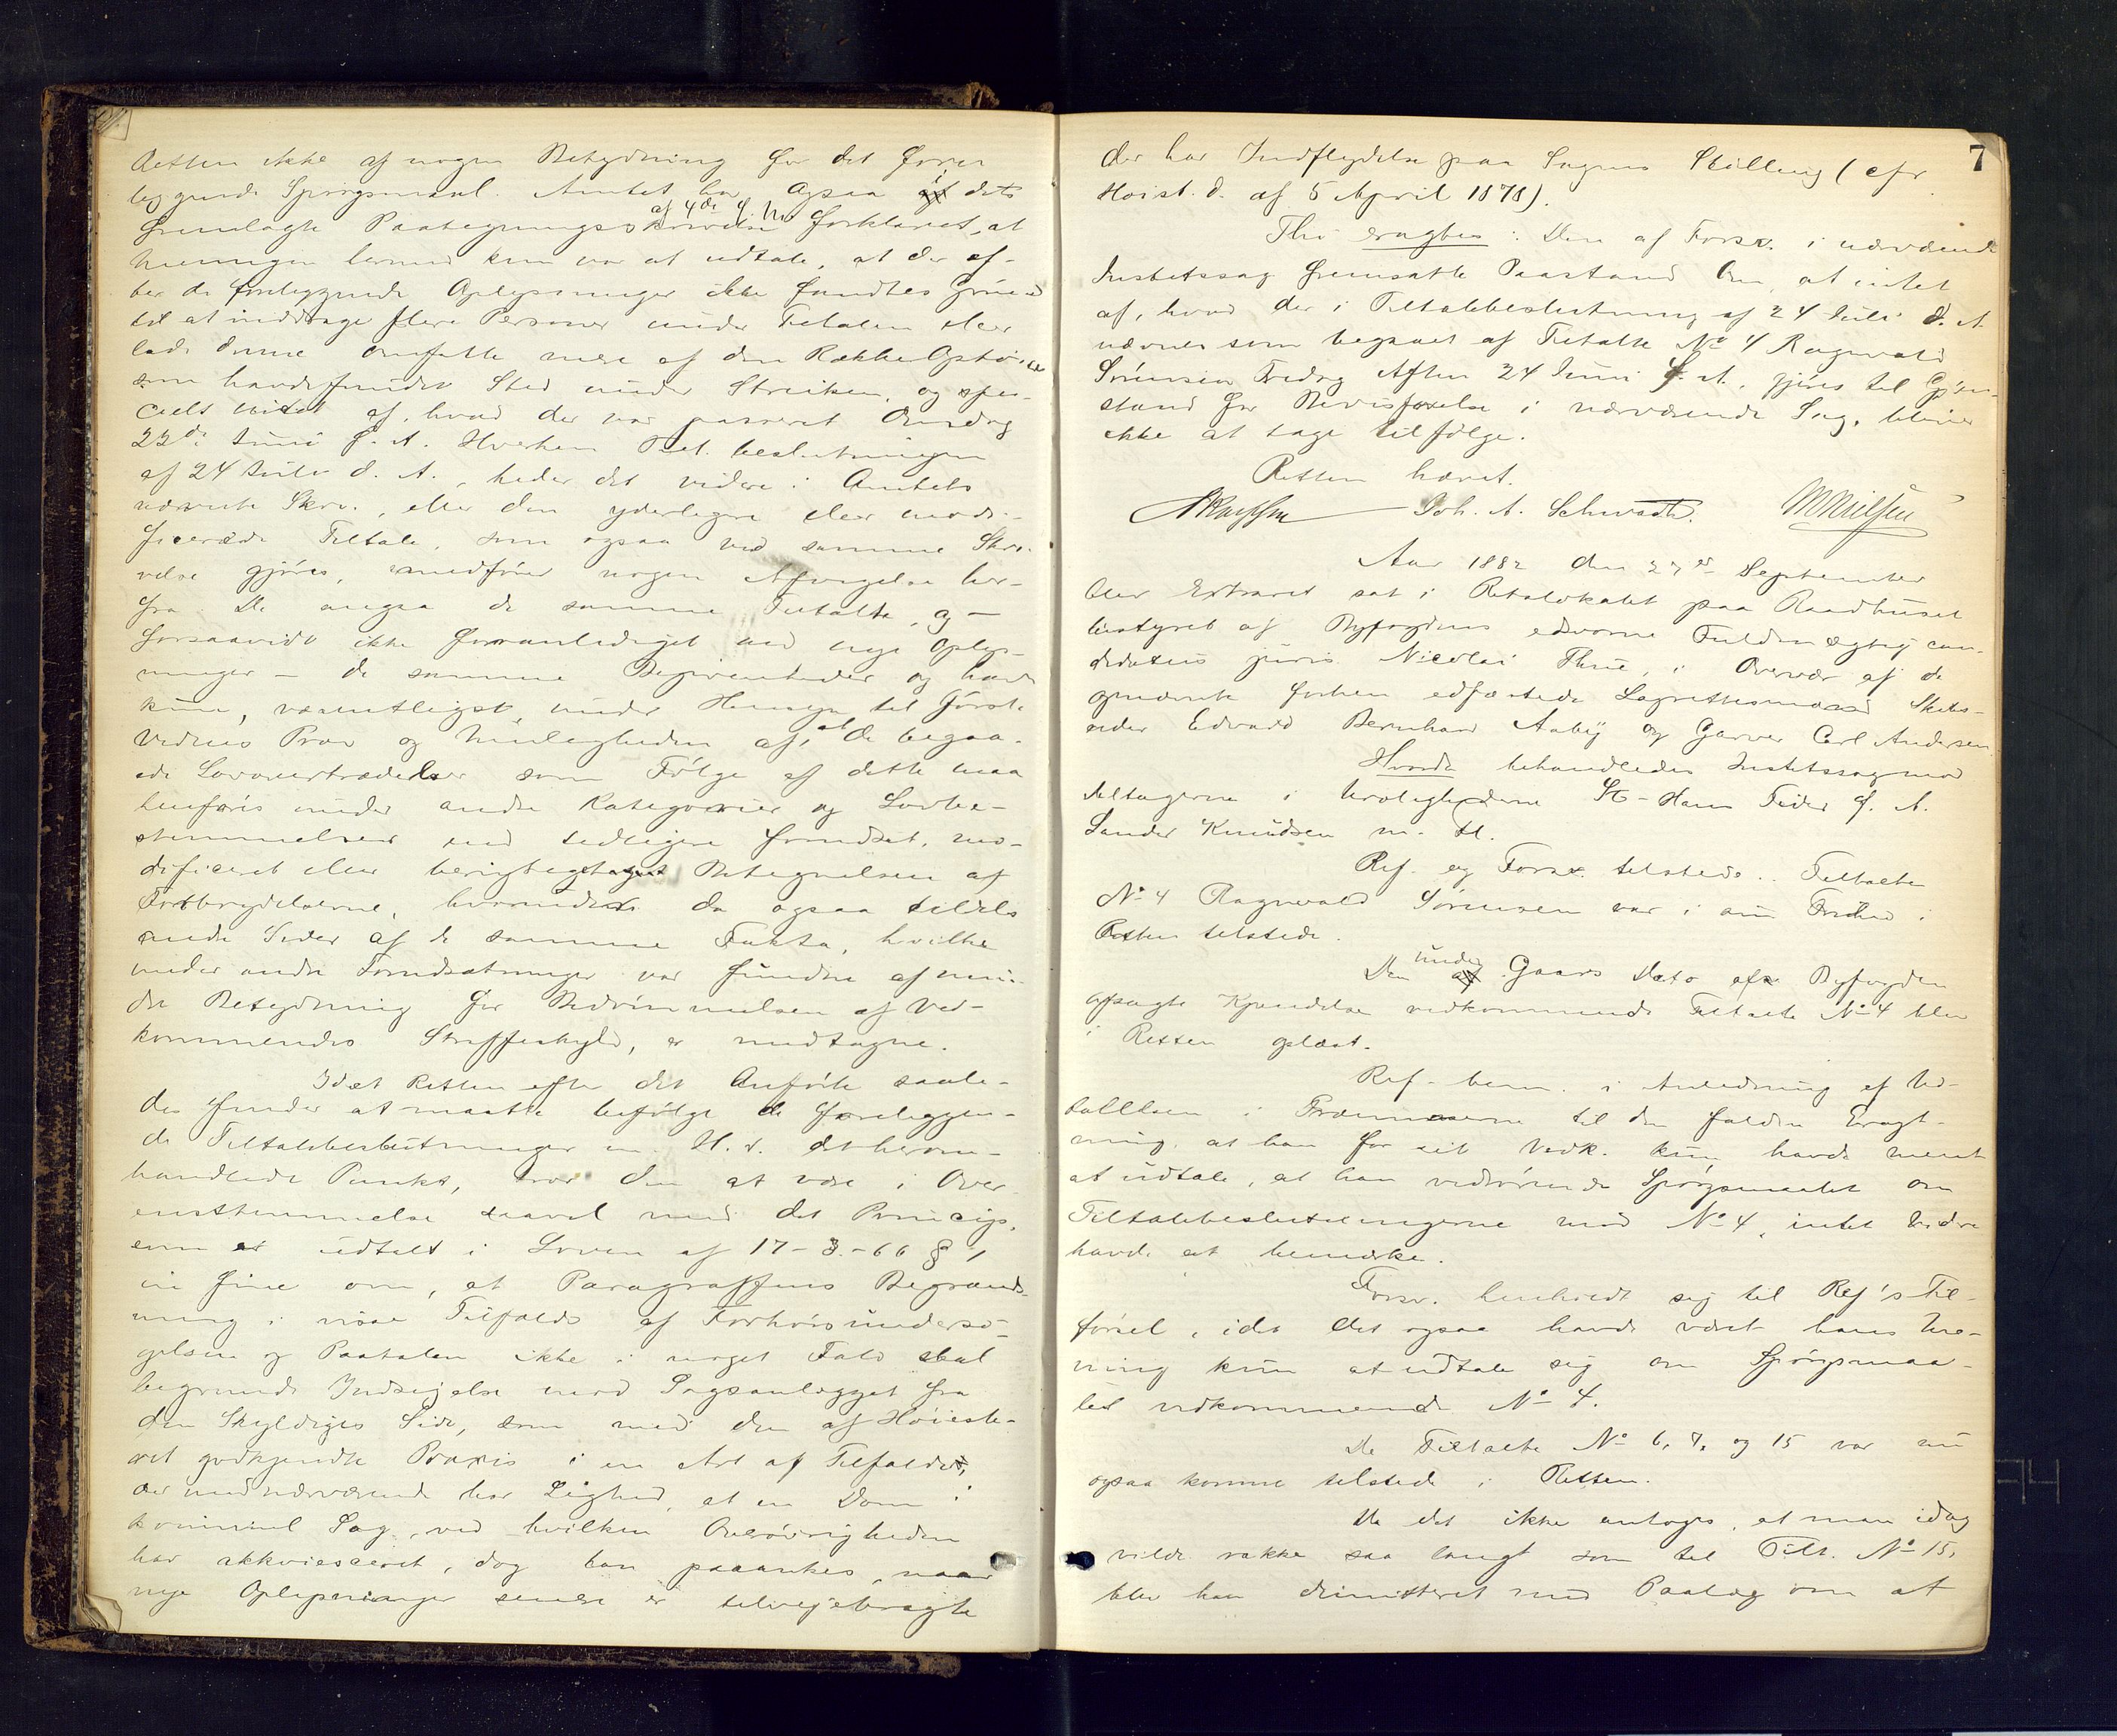 Retten ikke af nogen Betydning for det fore-
liggende Spørgsmaal. Amtet har ogsaa i dets
fremlagte Paategningsskrivelse af 4de d. M. forklaret, at
Meningen hermed kun var at udtale, at der ef-
ter de foreliggende Oplysninger ikke fandtes Grund
til at inddrage flere Personer under Tiltalen eller
lade denne omfatte mere af den Række Optøier
som havde fundet Sted under Streiken, og spe-
cielt intet af, hvad der var passeret Onsdag
22de Juni f. A. Hverken Tilt. beslutningen
af 24 Juli d. A., heder det videre i Amtets
nævnte Skrv., eller den yderligere eller modi-
ficerede Tiltale, som ogsaa ved samme Skri-
velse gjøres, medfører nogen Afvigelse her-
fra. De angaa de samme Tiltalte, og –
forsaavidt ikke foranlediget ved nye Oplys-
ninger – de samme Begivenheder og havde
kun, væsentligst under Hensyn til første
Vidnes Prov og Muligheden af, at de begaa-
ede Lovovertrædelser som Følge af dette maa
henføres under andre Kategorier og Lovbe-
stemmelser end tidligere forudsat, mo-
dificeret eller berigtiget Betegnelsen af
Forbrydelserne, hvorunder da ogsaa tildels
andre Sider af de samme Fakta, hvilke
under andre Forudsætninger var fundne af min-
dre Betydning for Bedømmelsen af Ved-
kommendes Straffeskyld, er medtagne.
Idet Retten efter det Anførte saale-
des finder at maatte befølge de foreliggen-
de Tiltalebeslutninger m. H. t. det herom-
handlede Punkt, tror den at være i Over-
ensstemmelse saavel med det Princip,
som er udtalt i Loven af 17-3-66 § 1
in fine om, at Paragraffens Begrænds-
ning i visse Tilfælde af Forhørsundersø-
gelsen og Paatalen ikke i noget Fald skal
begrunde Indsigelse mod Sagsanlægget fra
den Skyldiges Side, som med den af Høieste-
ret godkjendte Praxis i en Art af Tilfælde,
der med nærværende har Lighed, at en Dom i
kriminel Sag, ved hvilken Overøvrigheden
har akkviesceret, dog kan paaankes, naar
nye Oplysninger senere er tilvejebragte
7
der har Indflydelse paa Sagens Stilling (cfr.
Høist. d. af 5 April 1878).
Thi eragtes: Den af Forsv. i nærværende
Justitssag fremsatte Paastand om, at intet
af, hvad der i Tiltalebeslutning af 24 Juli d. A.
nævnes som begaaet af Tiltalte No 4 Ragnvald
Sørensen Fredag Aften 24 Juni f. A., gjøres til Gjen-
stand for Bevisførelse i nærværende Sag, bliver
ikke at tage tilfølge.
Retten hævet.
Joh. A. Schwartz. M Nielsen
Aar 1882 den 27de September
blev Extraret sat i Retslokalet paa Raadhuset
bestyret af Byfogdens edsvorne Fuldmægtig can-
didatus juris Nicolai Thue, i Overvær af de
opnævnte forhen edfæstede Lagrettesmænd Skibs-
reder Edvard Bernhard Aaby og Garver Carl Andersen.
Hvorda behandledes Justitssag mod
deltagerne i Urolighederne St-Hans Tider f. A.
Sander Knudsen m. Fl.
Ref. og Forsv. tilstede. Tiltalte
No 4 Ragnvald Sørensen var i sin Frihed i
Retten tilstede.
Den under Gaars Dato af Byfogden
afsagte Kjendelse vedkommende Tiltalte No 4 blev
i Retten oplæst.
Ref. bem. i Anledning af Ud-
talelsen i Præmisserne til den faldne Eragt-
ning, at han for sit Vedk. kun havde ment
at udtale, at han vedrørende Spørgsmaalet om
Tiltalebeslutningerne mod No 4, intet videre
havde at bemærke.
Forsv. henholdt sig til Ref's Til-
førsel, idet det ogsaa havde været hans Me-
ning kun at udtale sig om Spørgsmaa-
let vedkommende No 4.
De Tiltalte No 6, 7, og 15 var nu
ogsaa komne tilstede i Retten.
Da det ikke antoges, at man idag
vilde række saa langt som til Tilt. No 15,
blev han dimitteret med Paalæg om at